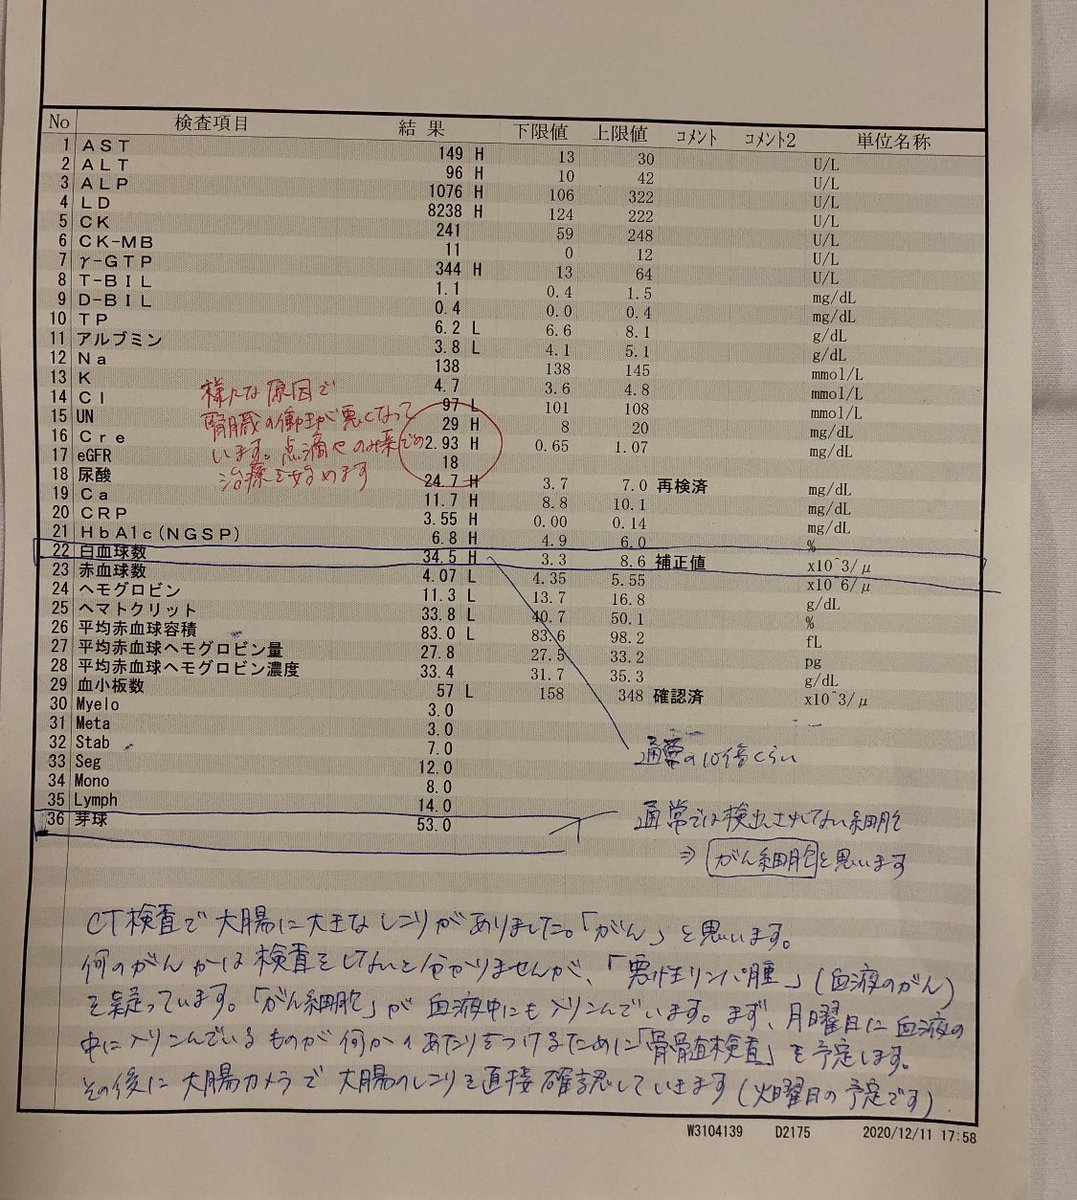 No 検査項目 結果 下限値 上限値 コメント コメント2 単位名称
1 AST 149 H 13 30 U/L
2 ALT 96 H 10 42 U/L
3 ALP 1076 H 106 322 U/L
4 LD 8238 H 124 222 U/L
5 CK 241 59 248 U/L
6 CK-MB 11 0 12 U/L
7 γ-GTP 344 H 13 64 U/L
8 T-BIL 1.1 0.4 1.5 mg/dL
9 D-BIL 0.4 0.0 0.4 mg/dL
10 TP 6.2 L 6.6 8.1 g/dL
11 アルブミン 3.8 L 4.1 5.1 g/dL
12 Na 138 138 145 mmol/L
13 K 4.7 3.6 4.8 mmol/L
14 Cl 97 L 101 108 mmol/L
15 UN 29 H 8 20 mg/dL
16 Cre 2.93 H 0.65 1.07 mg/dL
17 eGFR 18
18 尿酸 24.7 H 3.7 7.0 再検済 mg/dL
19 Ca 11.7 H 8.8 10.1 mg/dL
20 CRP 3.55 H 0.00 0.14 mg/dL
21 HbA1c(NGSP) 6.8 H 4.9 6.0 %
22 白血球数 34.5 H 3.3 8.6 補正値 x10^3/μ
23 赤血球数 4.07 L 4.35 5.55 x10^6/μ
24 ヘモグロビン 11.3 L 13.7 16.8 g/dL
25 ヘマトクリット 33.8 L 40.7 50.1 %
26 平均赤血球容積 83.0 L 83.6 98.2 fL
27 平均赤血球ヘモグロビン量 27.8 27.5 33.2 pg
28 平均赤血球ヘモグロビン濃度 33.4 31.7 35.3 g/dL
29 血小板数 57 L 158 348 確認済 x10^3/μ
30 Myelo 3.0
31 Meta 3.0
32 Stab 7.0
33 Seg 12.0
34 Mono 8.0
35 Lymph 14.0
36 芽球 53.0
様々な原因で
腎臓の働きが悪くなって
います。点滴や
治療を始めます
通常の10倍くらい
通常では検出されない細胞
⇒がん細胞と思います
CT検査で大腸に大きなしこりがありました。「がん」と思います。
何のがんかは検査をしないと分かりませんが、「悪性リンパ腫」(血液のがん)
を疑っています。「がん細胞」が血液中にも入りこんでいます。まず、月曜日に血液の
中に入りこんでいるものが何かのあたりをつけるために「骨髄検査」を予定します。
その後に大腸カメラで大腸のしこりを直接確認していきます(火曜日の予定です)
W3104139 D2175 2020/12/11 17:58